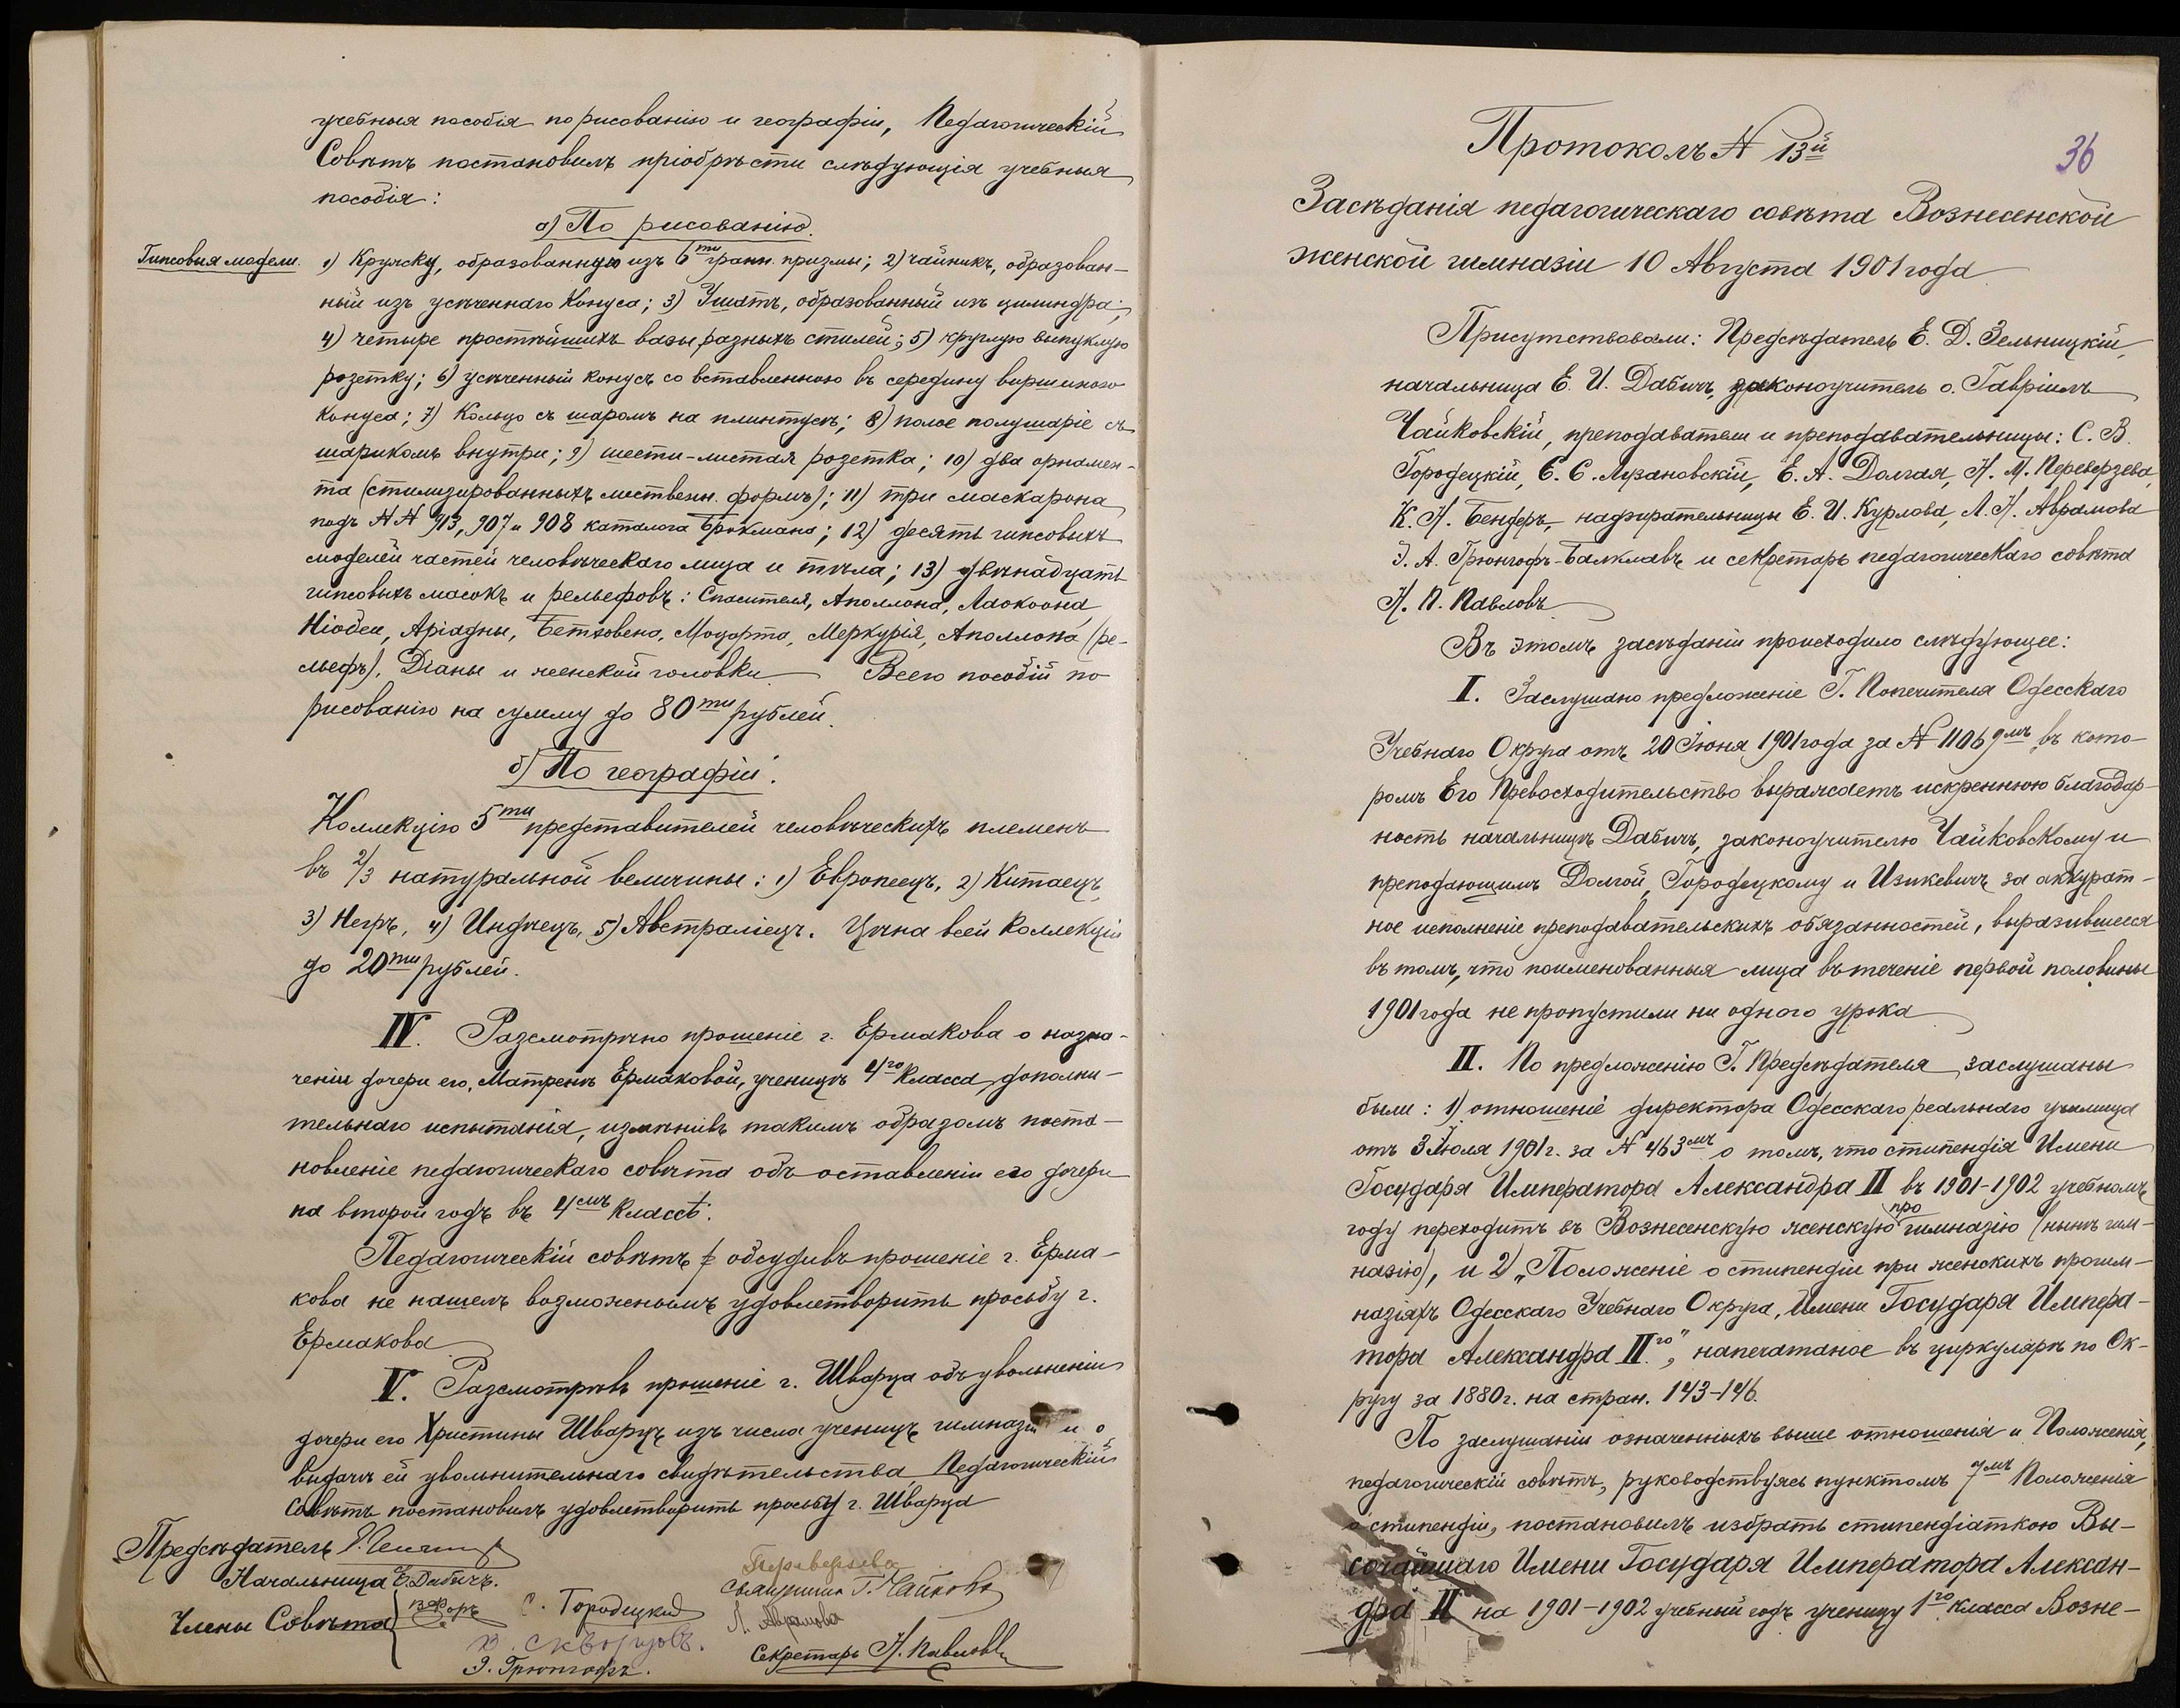 учебныя пособія по рисованію и географіи, Педагогическій
Совѣтъ постановилъ пріобрѣсти слѣдующія учебныя
пособія:
а) По рисованію.
Гипсовыя модели. 1) Кружку, образованную изъ 6ти гранн. призмы; 2) чайникъ, образован-
ный изъ усѣченнаго конуса; 3) Ушатъ, образованный изъ цилиндра;
4) четыре простѣйшихъ вазы разныхъ стилей; 5) круглую выпуклую
розетку; 6) усѣченный конусъ со вставленною въ середину вершиною
конуса; 7) Кольцо съ шаромъ на плинтусѣ; 8) полое полушаріе съ
шарикомъ внутри; 9) шести-листая розетка; 10) два орнамен-
та (стилизированныхъ листвен. формъ); 11) три маскарона
подъ №№ 913, 907 и 908 каталога Брокмана; 12) десять гипсовыхъ
моделей частей человѣческаго лица и тѣла; 13) двѣнадцать
гипсовыхъ масокъ и рельефовъ: Спасителя, Аполлона, Лаокоона,
Ніобеи, Аріадны, Бетховена, Моцарта, Меркурія, Аполлона (ре-
льефъ), Діаны и женской головки Всего пособій по
рисованію на сумму до 80ти рублей.
б) По географіи.
Коллекцію 5ти представителей человѣческихъ племенъ
въ 2/3 натуральной величины: 1) Европеецъ, 2) Китаецъ,
3) Негръ, 4) Индѣецъ, 5) Австраліецъ. Цѣна всей коллекціи
до 20ти рублей.
IV. Разсмотрѣно прошеніе г. Ермакова о назна-
ченіи дочери его, Матренѣ Ермаковой, ученицѣ 4го класса, дополни-
тельнаго испытанія, измѣнивъ такимъ образомъ поста-
новленіе педагогическаго совѣта объ оставленіи его дочери
на второй годъ въ 4мъ классѣ.
Педагогическій совѣтъ обсудивъ прошеніе г. Ерма-
кова не нашелъ возможнымъ удовлетворить просьбу г.
Ермакова
V. Разсмотрѣвъ прошеніе г. Шварца объ увольненіи
дочери его Христины Шварцъ изъ числа ученицъ гимназіи и о
выдачѣ ей увольнительнаго свидѣтельства Педагогическій
Совѣтъ постановилъ удовлетворить просьбу г. Шварца
Предсѣдатель
Начальница Е. Дабичъ.
Члены Совѣта
С. Городецкій
В. Скворцовъ.
Э. Грюнгофъ.
Переверзева
Священник Г. Чайковск
Л. Аврамова
Секретарь Н. Павловъ
36
Протоколъ № 13й
Засѣданія педагогическаго совѣта Вознесенской
женской гимназіи 10 Августа 1901 года
Присутствовали: Предсѣдатель Е. Д. Зельницкій,
начальница Е. И. Дабичъ, законоучитель о. Гавріилъ
Чайковскій, преподаватели и преподавательницы: С. В.
Городецкій, Е. С. Лузановскій, Е. А. Долгая, Н. М. Переверзева,
К. Н. Бендеръ, надзирательницы Е. И. Курлова, Л. Н. Аврамова
Э. А. Грюнгофъ-Балклавъ и секретарь педагогическаго совѣта
Н. П. Павловъ
Въ этомъ засѣданіи происходило слѣдующее:
I. Заслушано предложеніе Г. Попечителя Одесскаго
Учебнаго Округа отъ 20 Іюня 1901 года за № 11069мъ, въ кото-
ромъ Его Превосходительство выражаетъ искреннюю благодар-
ность начальницѣ Дабичъ, законоучителю Чайковскому и
преподающимъ Долгой, Городецкому и Изикевичъ за аккурат-
ное исполненіе преподавательскихъ обязанностей, выразившееся
въ томъ, что поименованныя лица въ теченіе первой половины
1901 года не пропустили ни одного урока
II. По предложенію Г. Предсѣдателя заслушаны
были: 1) отношеніе директора Одесскаго реальнаго училища
отъ 3 Іюля 1901 г. за № 463мъ о томъ, что стипендія Имени
Государя Императора Александра II въ 1901-1902 учебномъ
году переходитъ въ Вознесенскую женскую прогимназію (нынѣ гим-
назію), и 2) „Положеніе о стипендіи при женскихъ прогим-
назіяхъ Одесскаго Учебнаго Округа, Имени Государя Импера-
тора Александра IIго", напечатаное въ циркулярѣ по Ок-
ругу за 1880 г. на стран. 143-146.
По заслушаніи означенныхъ выше отношенія и Положенія,
педагогическій совѣтъ, руководствуясь пунктомъ 7мъ Положенія
о стипендіи, постановилъ избрать стипендіаткою Вы-
сочайшаго Имени Государя Императора Алексан-
дра II на 1901-1902 учебный годъ ученицу 1го класса Возне-